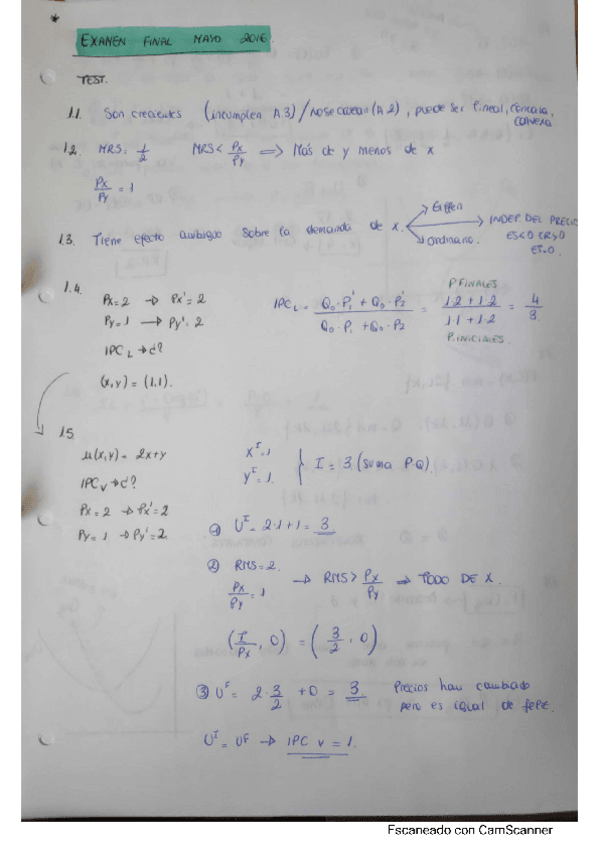 *
EXAMEN FINAL MAYO 2016.
TEST.
1.1. Son crecientes (incumplen A.3) / no se cavean (A 2), puede ser lineal, concava, convexa
1.2. MRS = 1/2 MRS < Px/Py ⇒ Más de y menos de x
Px/Py = 1
1.3. Tiene efecto ambiguo sobre la demanda de x.
Giffen
INDEP DEL PRECIO
ordinario.
ES<0 ER>0
ET=0
1.4.
Px=2 → Px'=2
Py=1 → Py'=2
IPC L → ¿?
(x,y) = (1,1).
IPC L = Q0·P1' + Q0·P2' / Q0·P1 + Q0·P2 = 1·2 + 1·2 / 1·1 + 1·2 = 4/3
P FINALES
P. INICIALES
1.5.
u(x,y) = 2x+y
IPC V → ¿?
Px=2 → Px'=2
Py=1 → Py'=2
x^I=1
y^I=1.
I = 3 (suma P·Q).
① U^I = 2·1+1 = 3
② RMS=2.
Px/Py = 1 → RMS > Px/Py ⇒ TODO DE X.
(I/Px, 0) = (3/2, 0)
③ U^F = 2·3/2 + 0 = 3 Precios han cambiado
pero es igual de
U^I = U^F → IPC v = 1.
Escaneado con CamScanner